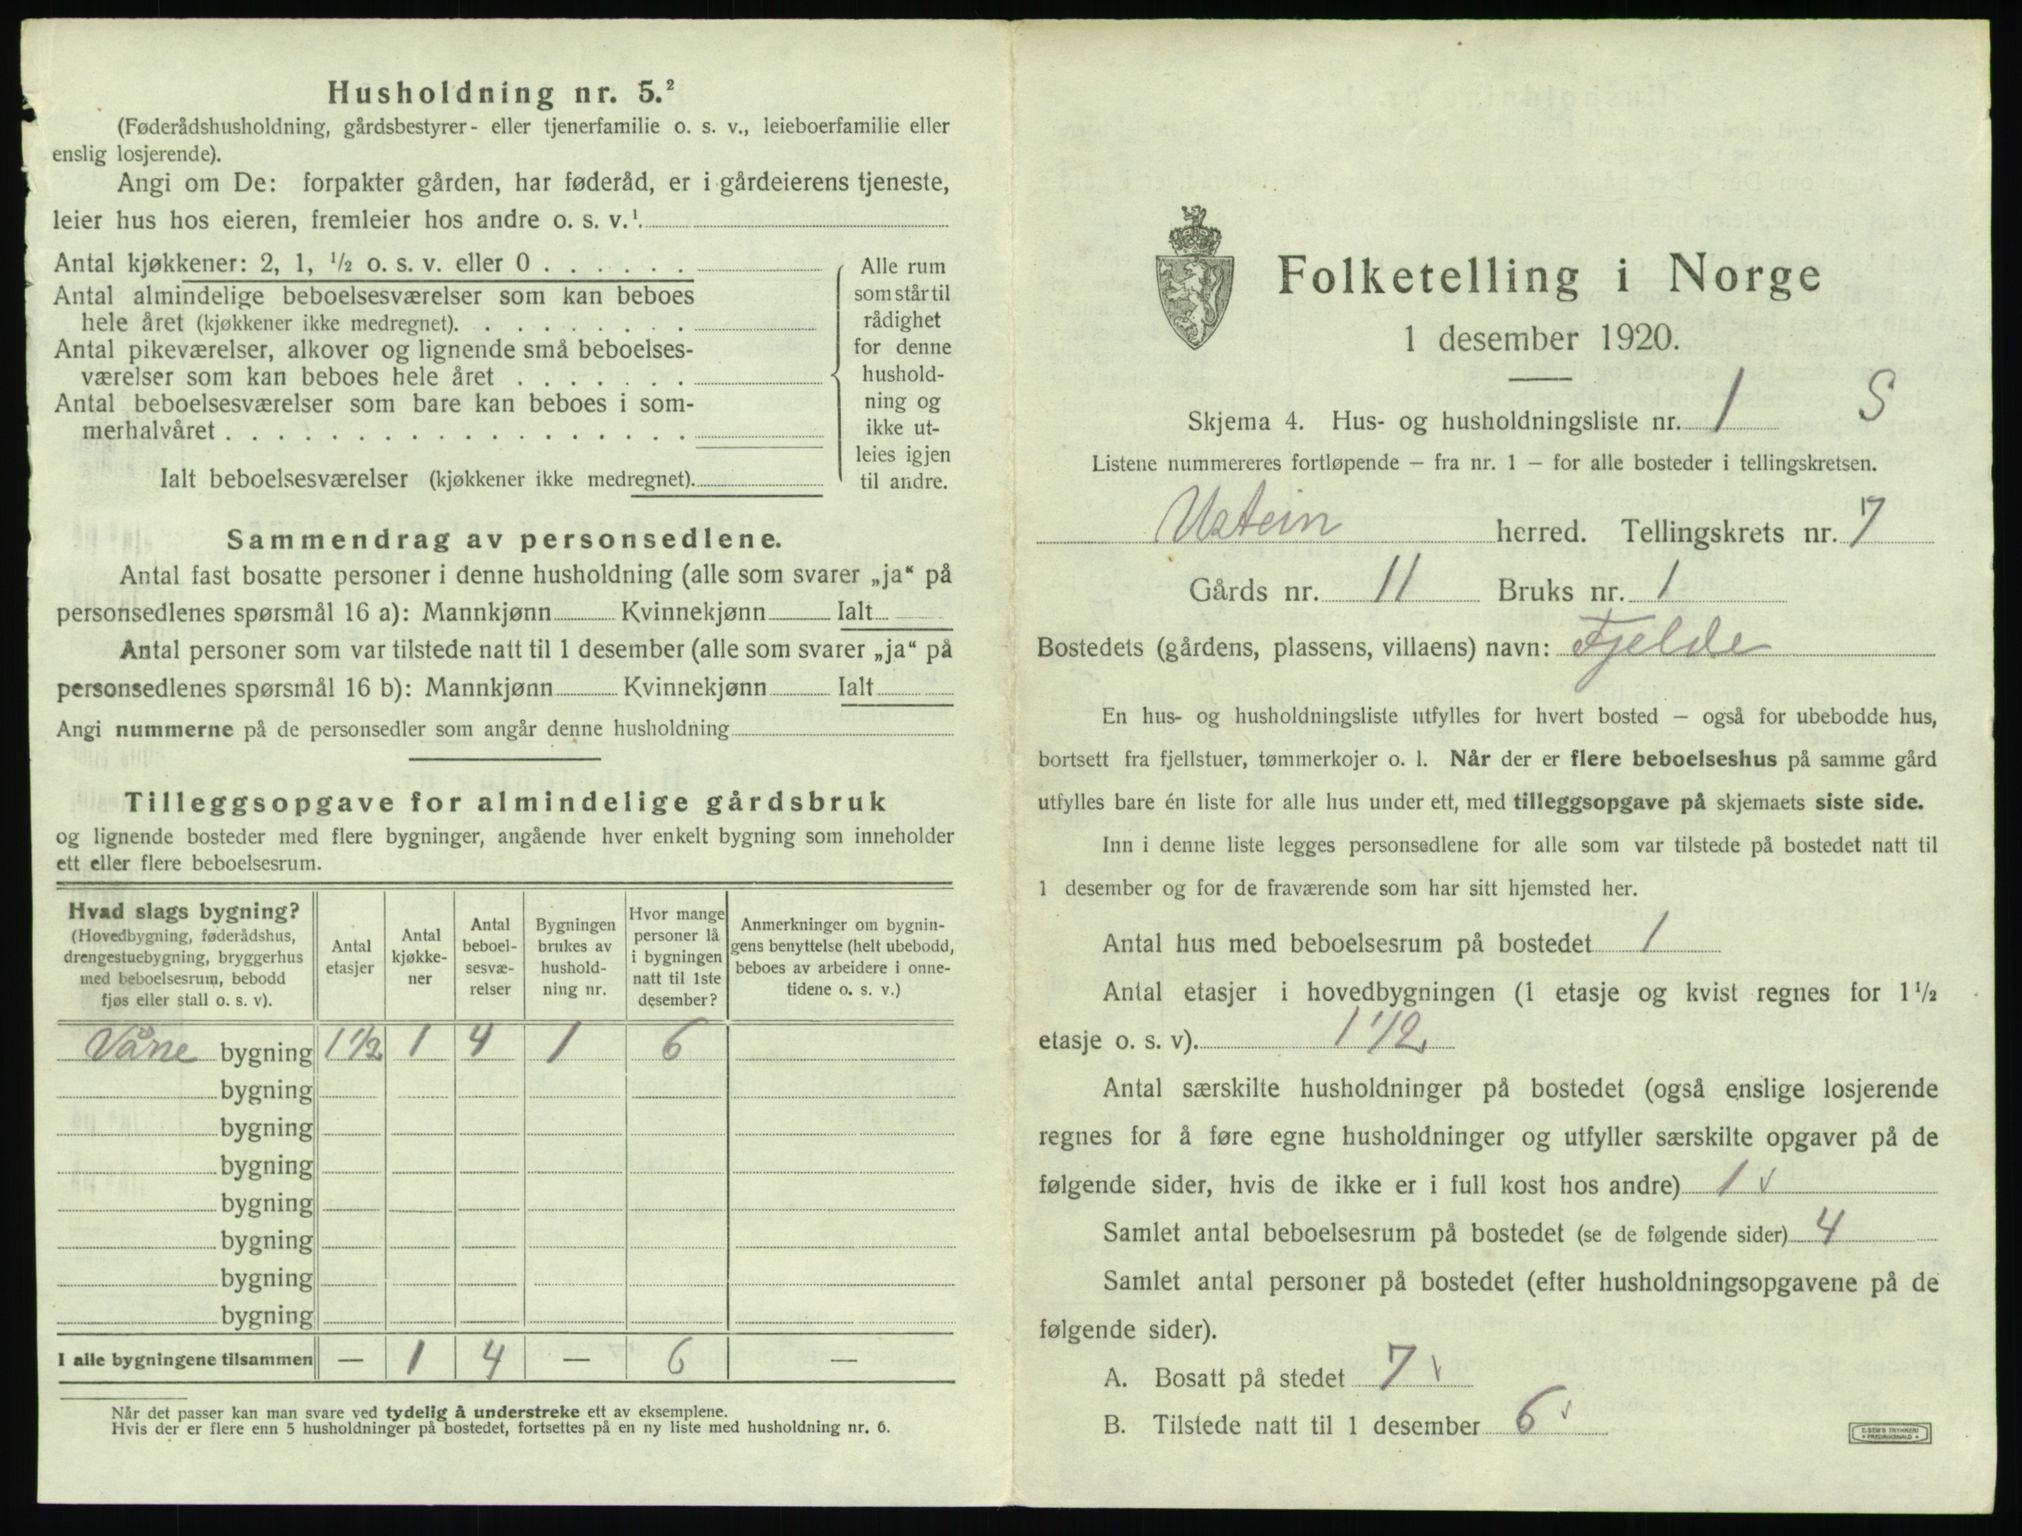 Husholdning nr. 5.²
(Føderådshusholdning, gårdsbestyrer- eller tjenerfamilie o. s. v., leieboerfamilie eller
enslig losjerende).
Angi om De: forpakter gården, har føderåd, er i gårdeierens tjeneste,
leier hus hos eieren, fremleier hos andre o. s. v.¹
Antal kjøkkener: 2, 1, ½ o. s. v. eller 0
Antal almindelige beboelsesværelser som kan beboes
hele året (kjøkkener ikke medregnet).
Antal pikeværelser, alkover og lignende små beboelses-
værelser som kan beboes hele året
Antal beboelsesværelser som bare kan beboes i som-
merhalvåret
Ialt beboelsesværelser (kjøkkener ikke medregnet).
Alle rum
som står til
rådighet
for denne
hushold-
ning og
ikke ut-
leies igjen
til andre.
Sammendrag av personsedlene.
Antal fast bosatte personer i denne husholdning (alle som svarer „ja“ på
personsedlenes spørsmål 16 a): Mannkjønn Kvinnekjønn Ialt
Antal personer som var tilstede natt til 1 desember (alle som svarer „ja“ på
personsedlenes spørsmål 16 b): Mannkjønn Kvinnekjønn Ialt
Angi nummerne på de personsedler som angår denne husholdning
Tilleggsopgave for almindelige gårdsbruk
og lignende bosteder med flere bygninger, angående hver enkelt bygning som inneholder
ett eller flere beboelsesrum.
Hvad slags bygning?
(Hovedbygning, føderådshus,
drengestuebygning, bryggerhus
med beboelsesrum, bebodd
fjøs eller stall o. s. v).
Antal
etasjer
Antal
kjøkke-
ner
Antal
beboel-
sesvæ-
relser
Bygningen
brukes av
hushold-
ning nr.
Hvor mange
personer lå
i bygningen
natt til 1ste
desember?
Anmerkninger om bygnin-
gens benyttelse (helt ubebodd,
beboes av arbeidere i onne-
tidene o. s. v.)
Våne bygning 1½ 1 4 1 6
bygning
bygning
bygning
bygning
bygning
bygning
bygning
I alle bygningene tilsammen — 1 4 — 6 —
Når det passer kan man svare ved tydelig å understreke ett av eksemplene.
Hvis der er flere enn 5 husholdninger på bostedet, fortsettes på en ny liste med husholdning nr. 6.
Folketelling i Norge
1 desember 1920.
Skjema 4. Hus- og husholdningsliste nr. 1 S
Listene nummereres fortløpende – fra nr. 1 – for alle bosteder i tellingskretsen.
Utstein herred. Tellingskrets nr. 7
Gårds nr. 11 Bruks nr. 1
Bostedets (gårdens, plassens, villaens) navn: Fjelde
En hus- og husholdningsliste utfylles for hvert bosted – også for ubebodde hus,
bortsett fra fjellstuer, tømmerkojer o. l. Når der er flere beboelseshus på samme gård
utfylles bare én liste for alle hus under ett, med tilleggsopgave på skjemaets siste side.
Inn i denne liste legges personsedlene for alle som var tilstede på bostedet natt til
1 desember og for de fraværende som har sitt hjemsted her.
Antal hus med beboelsesrum på bostedet 1
Antal etasjer i hovedbygningen (1 etasje og kvist regnes for 1½
etasje o. s. v). 1 1/2
Antal særskilte husholdninger på bostedet (også enslige losjerende
regnes for å føre egne husholdninger og utfyller særskilte opgaver på de
følgende sider, hvis de ikke er i full kost hos andre) 1 v
Samlet antal beboelsesrum på bostedet (se de følgende sider) 4
Samlet antal personer på bostedet (efter husholdningsopgavene på de
følgende sider).
A. Bosatt på stedet 7 v
B. Tilstede natt til 1 desember 6 v
E. SEM'S TRYKKERI
FREDRIKSHALD